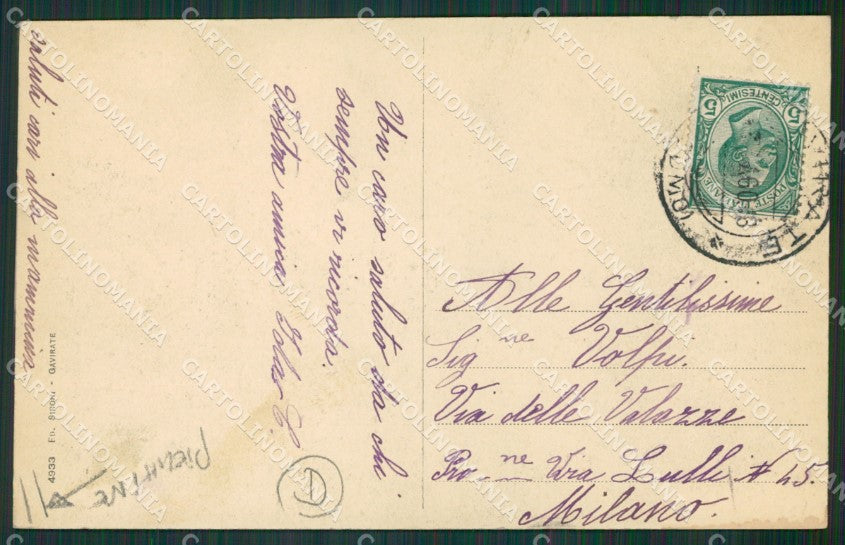 Un caro saluto da chi
sempre vi ricorda.
Vostra amica
saluti cari alla mammina
4933 ED. SIBONI - GAVIRATE
Alle Gentilissime
Sig.ne Volpi.
Via delle Valazze
Pro.ne Via Lulli # 45.
Milano.
CENTESIMI
5 5
POSTE ITALIANE
CARTOLINOMANIA